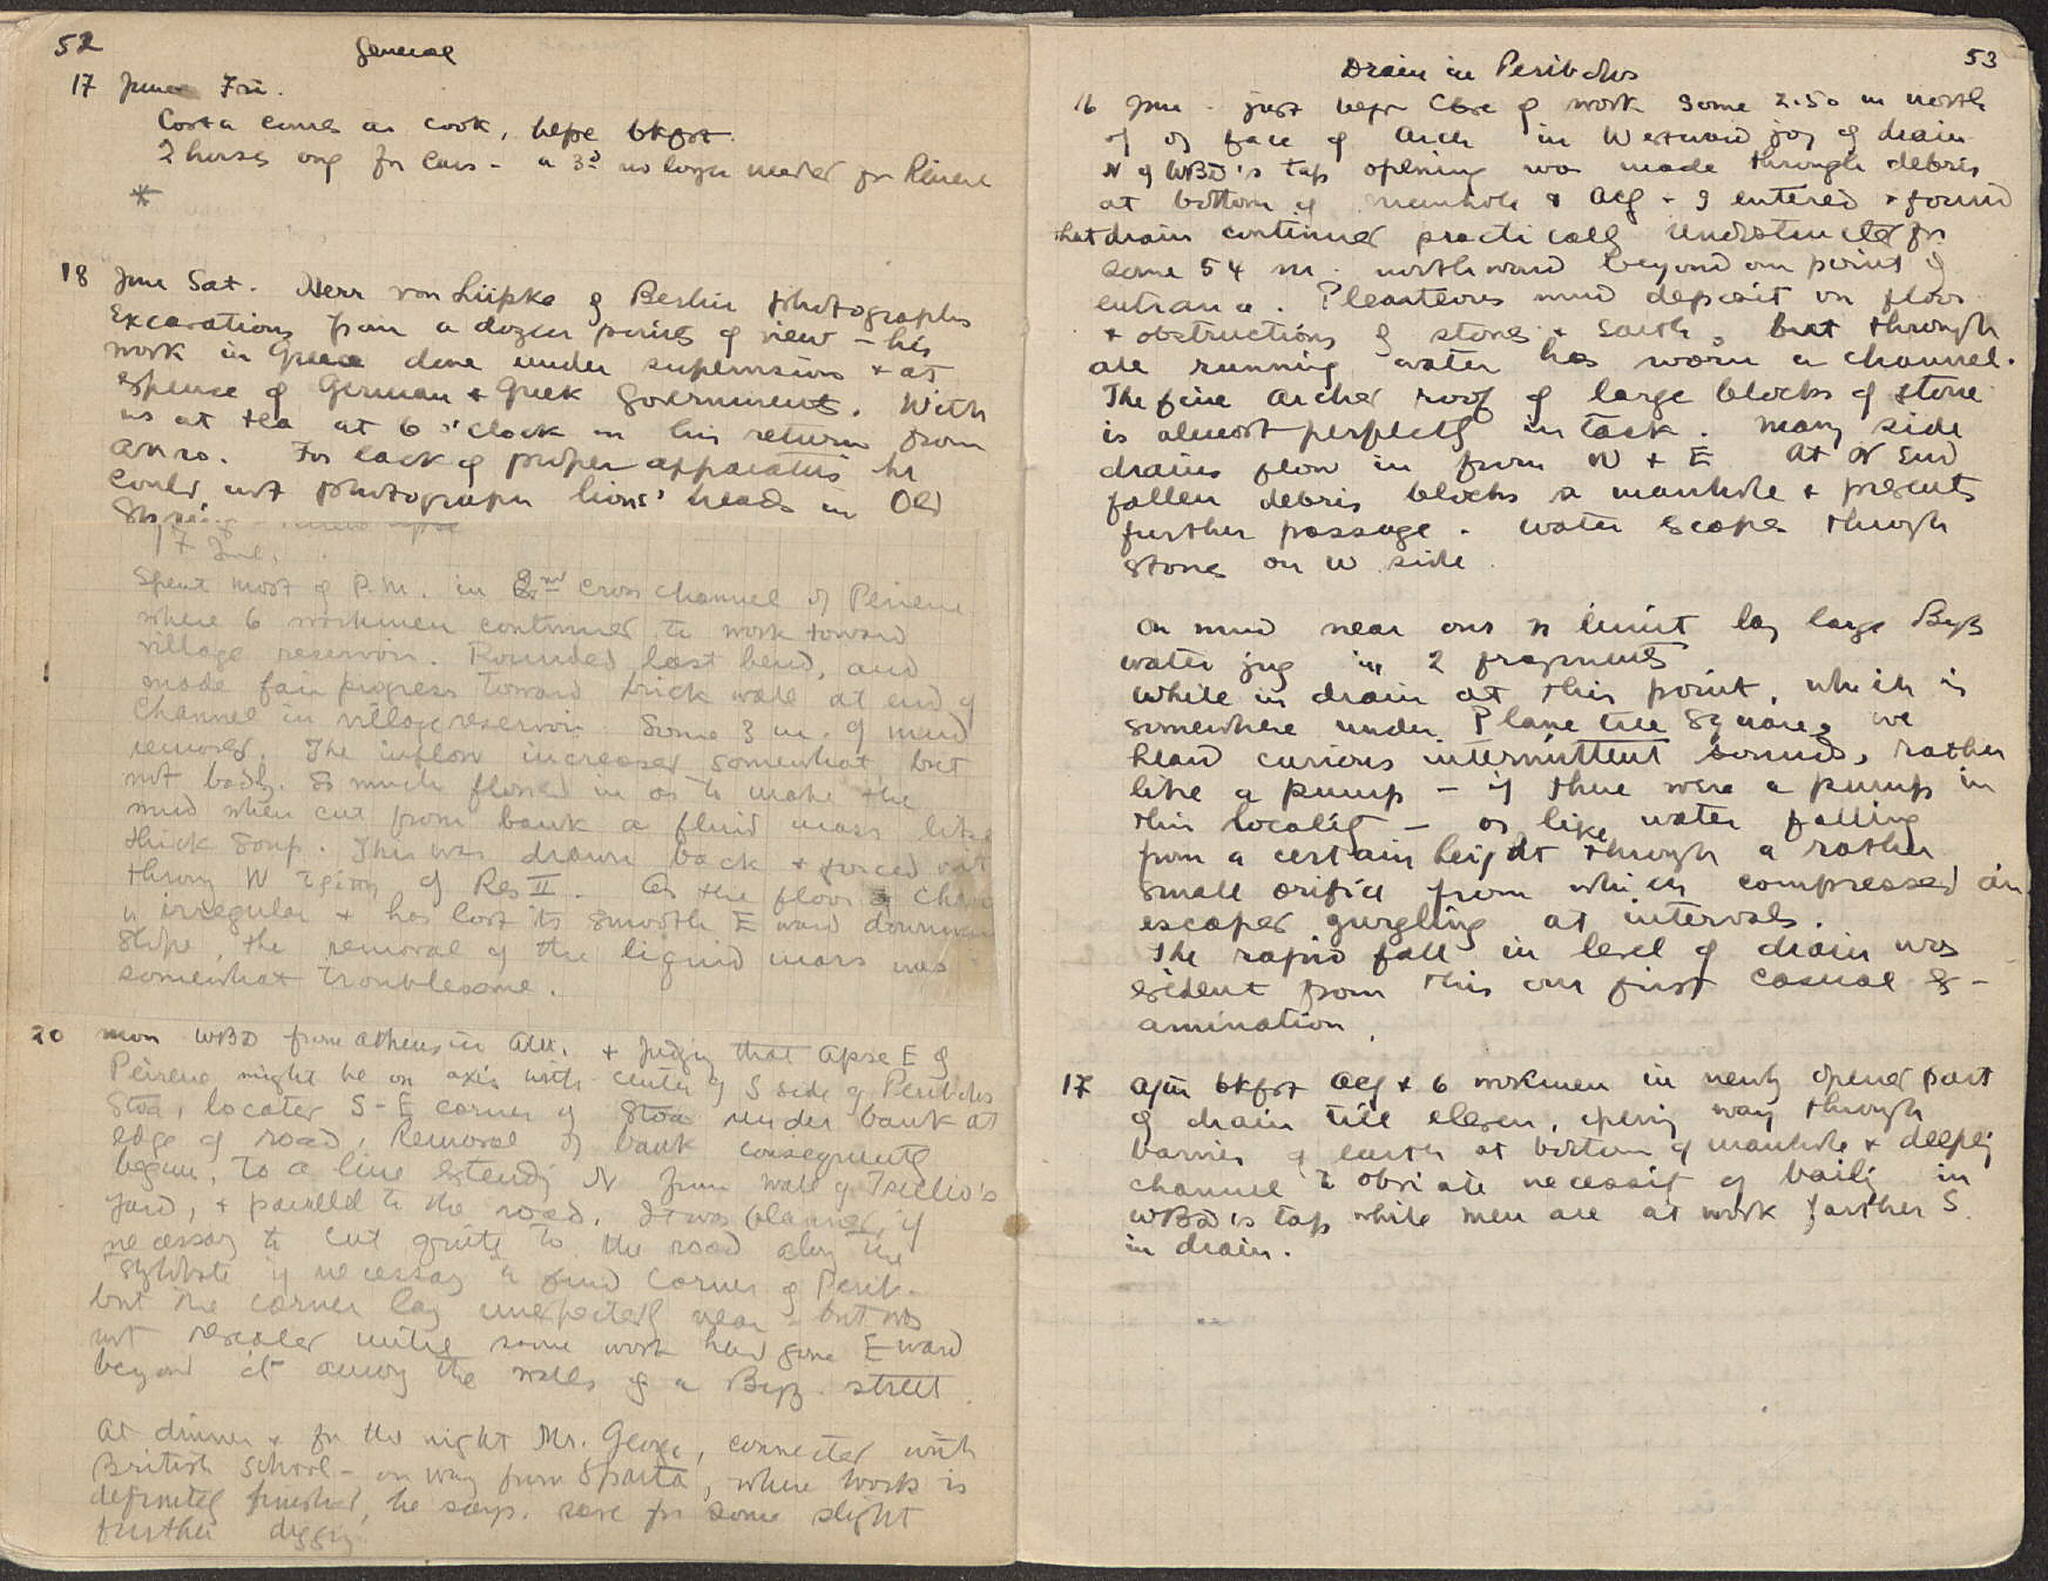 52
General
17 June Fri.
Costa comes as cook, before bkfst.
2 horses only for cars - a 3d no longer needed for Peirene
*
18 June Sat. Herr von Lüpke of Berlin photographs
Excavations from a dozen points of view - his
work in Greece done under supervision & at
expense of German & Greek Governments. With
us at tea at 6 o'clock on his return from
Akro. For lack of proper apparatus he
could not photograph lions' heads in Old
Spring
17 June.
Spent most of P.M. in 2nd Cross channel of Peirene
where 6 workmen continued to work toward
village reservoir. Rounded last bend, and
made fair progress toward brick wall at end of
Channel in village reservoir. Some 3 m. of mud
removed. The inflow increased somewhat, but
not badly. So much flowed in as to make the
mud when cut from bank a fluid mass like
thick soup. This was drawn back & forced out
through W opening of Res II. As the floor of chan
is irregular & has lost its smooth E ward downward
slope, the removal of the liquid mass was
somewhat troublesome.
20 Mon WBD from Athens in AM. & judging that apse E of
Peirene might be on axis with center of S side of Peribolos
Stoa, located S-E corner of Stoa under bank at
edge of road. Removal of bank consequently
began, to a line extending N from wall of Tselio's
yard, & parallel to the road. It was planned, if
necessary to cut quite to the road along the
Stylobate if necessary to find corner of Perib.
but the corner lay unexpectedly near - but was
not revealed until some work had gone E ward
beyond it among the walls of a Byz. street
At dinner & for the night Mr. George, connected with
British School - on way from Sparta, where work is
definitely finished, he says, save for some slight
further digging
53
Drain in Peribolos
16 June - just before close of work some 2.50 m north
of face of Arch in Westward jog of drain
N of WBD's tap opening was made through debris
at bottom of manhole & ACG & I entered & found
that drain continued practically unobstructed for
some 54 m. northward beyond our point of
entrance. Plenteous mud deposit on floor
& obstructions of stones & earth, but through
all running water has worn a channel.
The fine arched roof of large blocks of stone
is almost perfectly intact. Many side
drains flow in from W & E At N end
fallen debris blocks a manhole & prevents
further passage. Water escapes through
stones on W side.
On mud near our N limit lay large Byz
water jug in 2 fragments
While in drain at this point, which is
somewhere under Plane tree Square, we
heard curious intermittent sounds, rather
like a pump - if there were a pump in
this locality - or like water falling
from a certain height through a rather
small orifice from which compressed air
escaped gurgling at intervals.
The rapid fall in level of drain was
evident from this our first casual ex-
amination.
17 After bkfst ACG & 6 workmen in newly opened part
of drain till eleven, opening way through
barrier of earth at bottom of manhole & deepening
channel to obviate necessity of bailing in
WBD's tap while men are at work farther S
in drain.